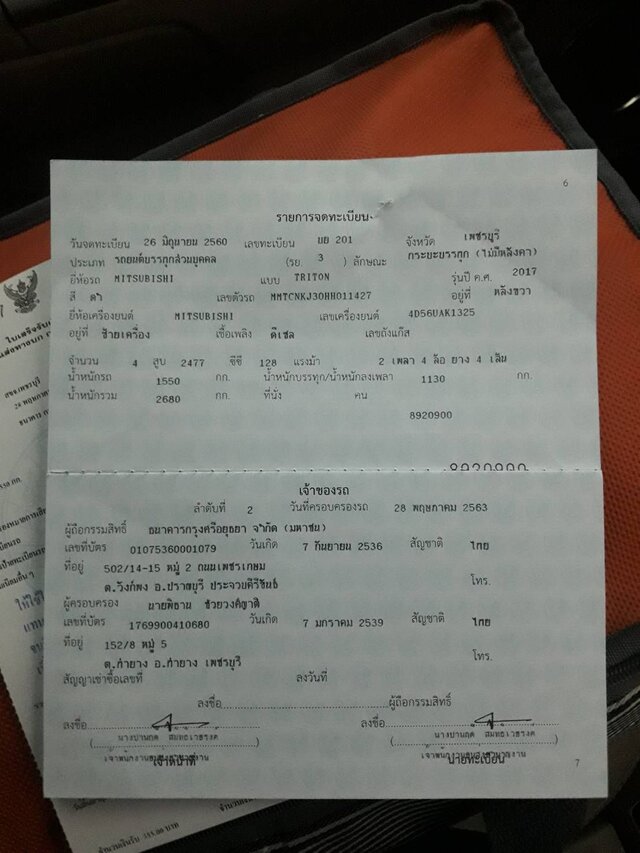 6
รายการจดทะเบียน
วันจดทะเบียน 26 มิถุนายน 2560 เลขทะเบียน บย 201 จังหวัด เพชรบุรี
ประเภท รถยนต์บรรทุกส่วนบุคคล (รย. 3 ) ลักษณะ กระบะบรรทุก (ไม่มีหลังคา)
ยี่ห้อรถ MITSUBISHI แบบ TRITON รุ่นปี ค.ศ. 2017
สี ดำ เลขตัวรถ MMTCNKJ30HH011427 อยู่ที่ หลังขวา
ยี่ห้อเครื่องยนต์ MITSUBISHI เลขเครื่องยนต์ 4D56UAK1325
อยู่ที่ ซ้ายเครื่อง เชื้อเพลิง ดีเซล เลขถังแก๊ส
จำนวน 4 สูบ 2477 ซีซี 128 แรงม้า 2 เพลา 4 ล้อ ยาง 4 เส้น
น้ำหนักรถ 1550 กก. น้ำหนักบรรทุก/น้ำหนักลงเพลา 1130 กก.
น้ำหนักรวม 2680 กก. ที่นั่ง คน
8920900
8920900
เจ้าของรถ
ลำดับที่ 2 วันที่ครอบครองรถ 28 พฤษภาคม 2563
ผู้ถือกรรมสิทธิ์ ธนาคารกรุงศรีอยุธยา จำกัด (มหาชน)
เลขที่บัตร 01075360001079 วันเกิด 7 กันยายน 2536 สัญชาติ ไทย
ที่อยู่ 502/14-15 หมู่ 2 ถนนเพชรเกษม
ต.วังก์พง อ.ปราณบุรี ประจวบคีรีขันธ์ โทร.
ผู้ครอบครอง นายพิธาน ช่วยวงศ์ญาติ
เลขที่บัตร 1769900410680 วันเกิด 7 มกราคม 2539 สัญชาติ ไทย
ที่อยู่ 152/8 หมู่ 5
ต.ท่ายาง อ.ท่ายาง เพชรบุรี โทร.
สัญญาเช่าซื้อเลขที่ ลงวันที่
ลงชื่อ ผู้ถือกรรมสิทธิ์
ลงชื่อ ลงชื่อ
เจ้าหน้าที่ นายทะเบียน
7